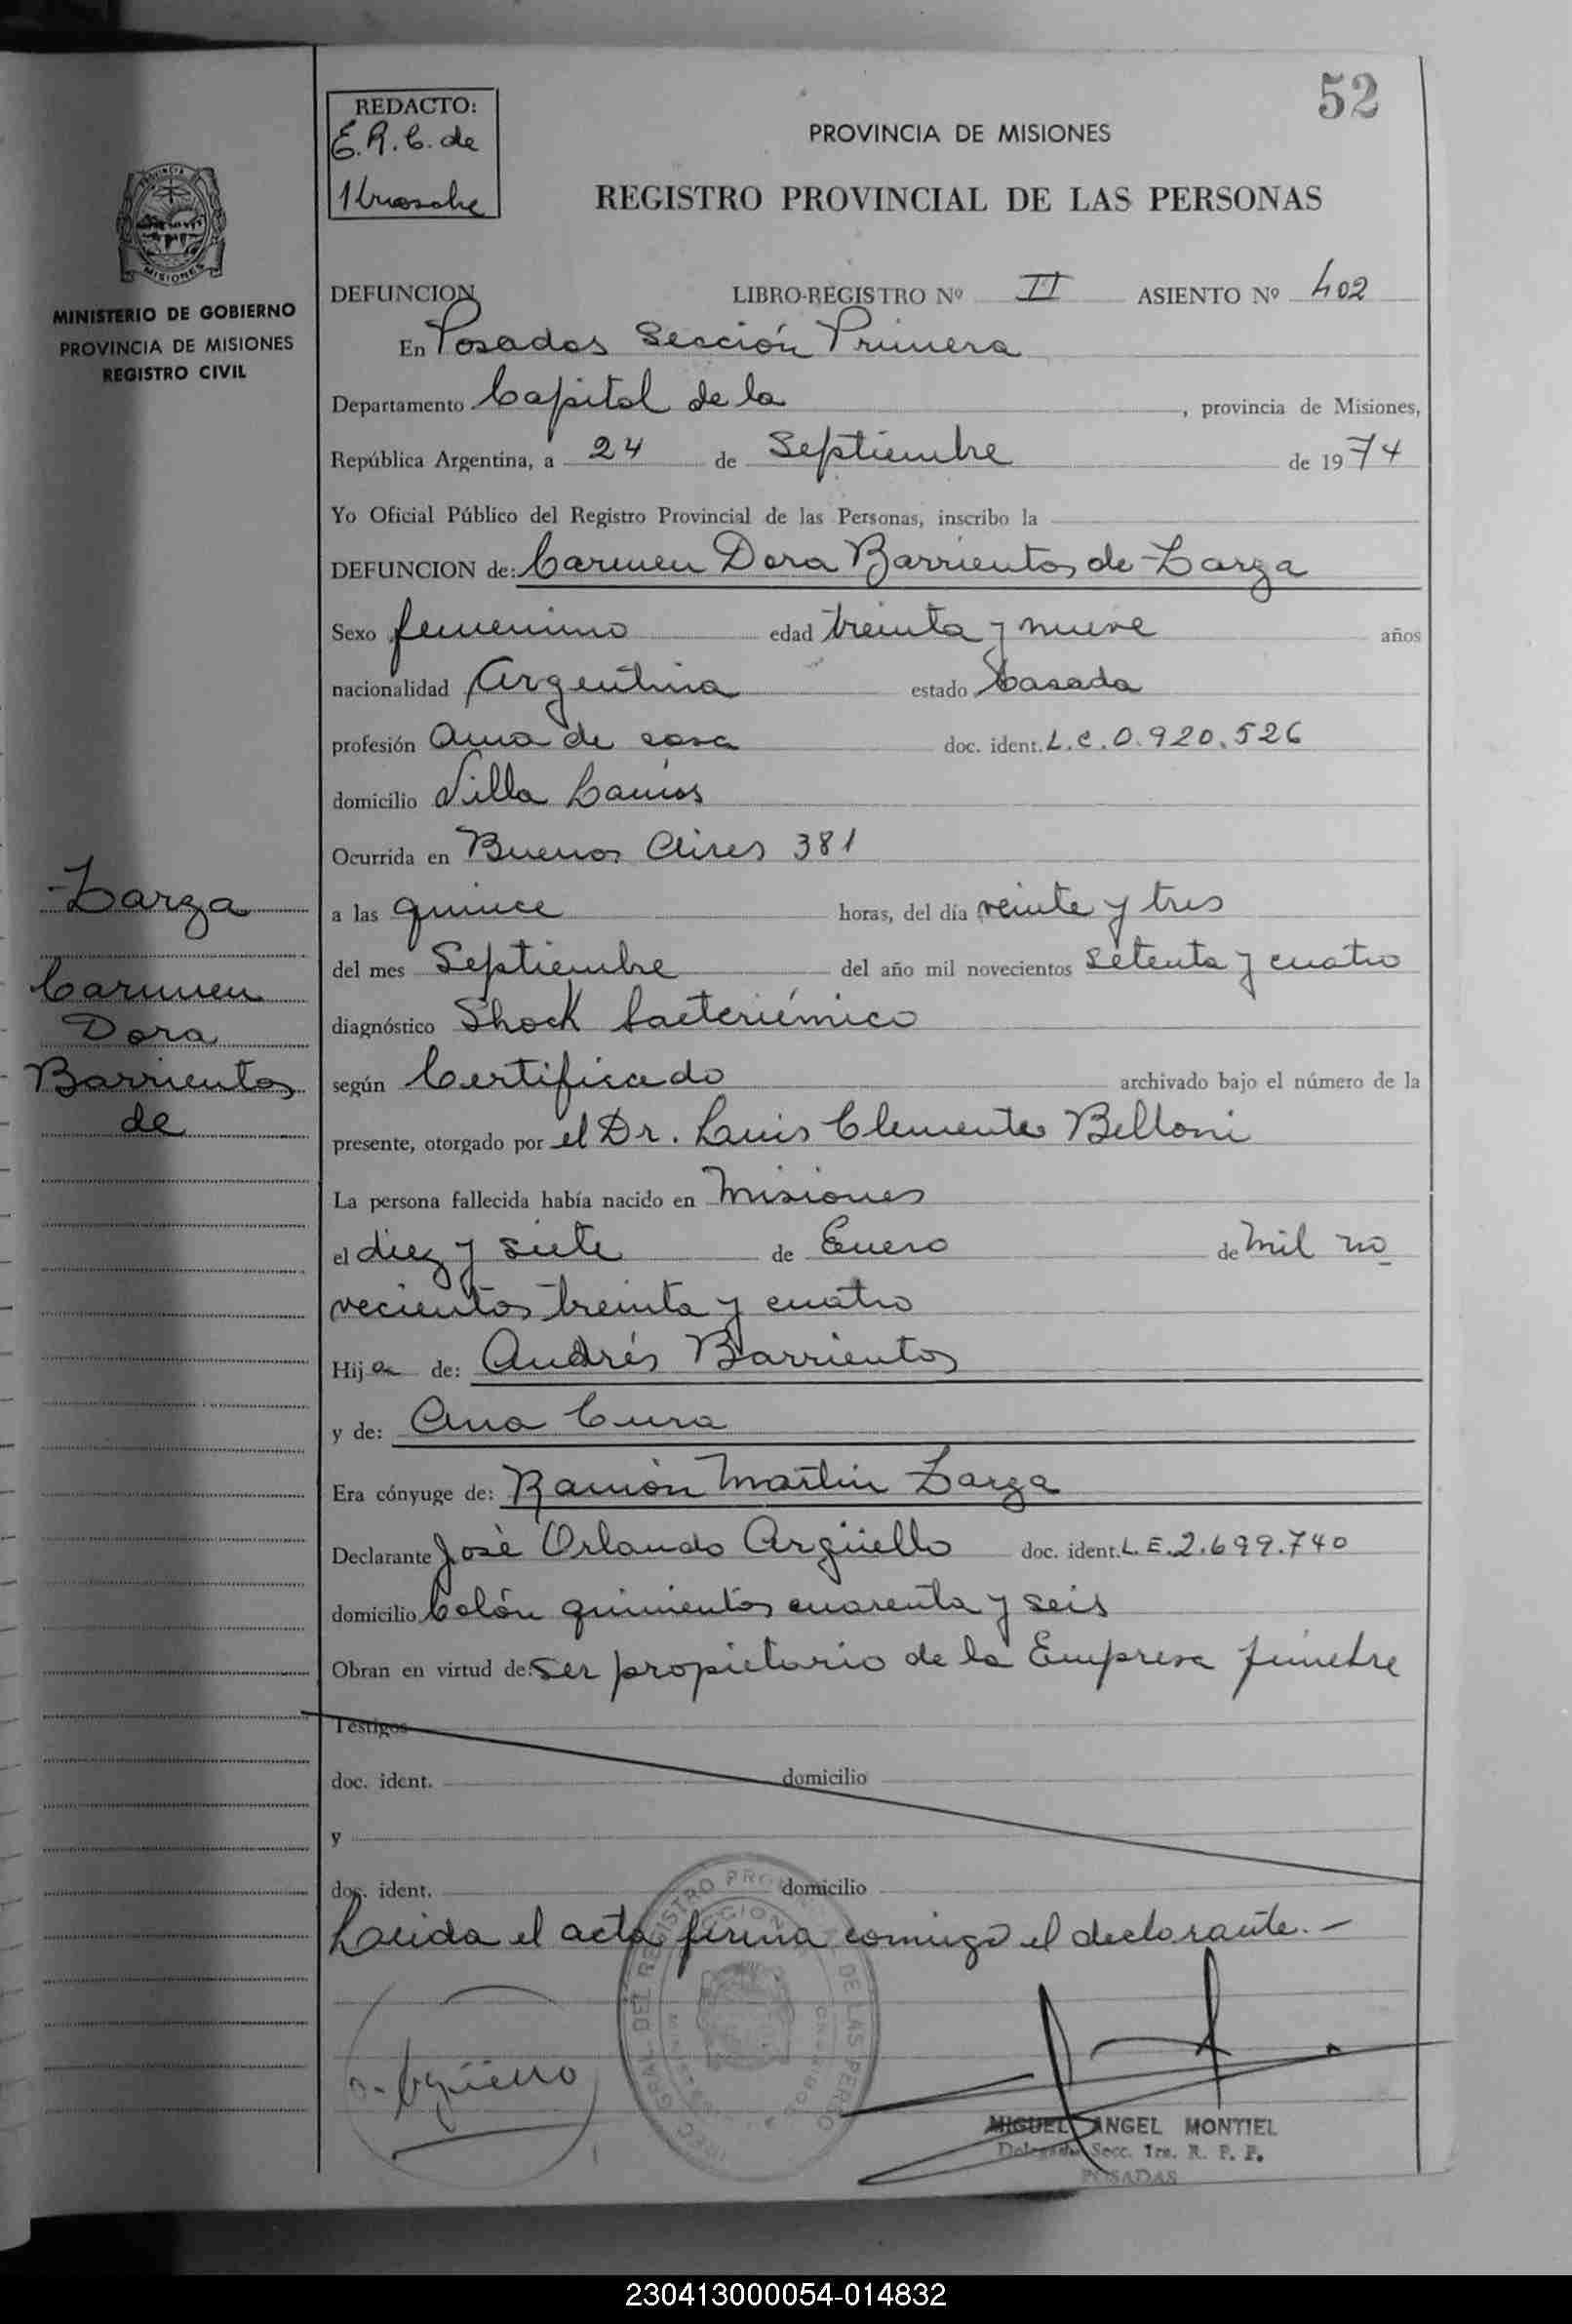 52
REDACTO:
E. R. C. de
PROVINCIA DE MISIONES
REGISTRO PROVINCIAL DE LAS PERSONAS
PROVINCIA DE
MISIONES
MINISTERIO DE GOBIERNO
PROVINCIA DE MISIONES
REGISTRO CIVIL
DEFUNCION LIBRO-REGISTRO Nº II ASIENTO Nº 402
En Posadas Sección Primera
Departamento Capital de la , provincia de Misiones,
República Argentina, a 24 de Septiembre de 1974
Yo Oficial Público del Registro Provincial de las Personas, inscribo la
DEFUNCION de: Carmen Dora Barrientos de Zarza
Sexo femenino edad treinta y nueve años
nacionalidad Argentina estado Casada
profesión Ama de casa doc. ident. L.C. 0.920.526
domicilio Villa Lanús
Ocurrida en Buenos Aires 381
a las quince horas, del día veinte y tres
del mes Septiembre del año mil novecientos setenta y cuatro
diagnóstico Shock bacteriémico
según Certificado archivado bajo el número de la
presente, otorgado por el Dr. Luis Clemente Belloni
La persona fallecida había nacido en Misiones
el diez y siete de Enero de mil no
vecientos treinta y cuatro
Hija de: Andrés Barrientos
y de: Ana Cura
Era cónyuge de: Ramón Martín Zarza
Declarante José Orlando Argüello doc. ident. L.E. 2.699.740
domicilio Colón quinientos cuarenta y seis
Obran en virtud de: ser propietario de la Empresa fúnebre
Testigos
doc. ident. domicilio
y
doc. ident. domicilio
Leída el acta firma conmigo el declarante. —
Zarza
Carmen
Dora
Barrientos
de
Argüello
MIGUEL ANGEL MONTIEL
Delegado Secc. 1ra. R. P. P.
POSADAS
230413000054-014832